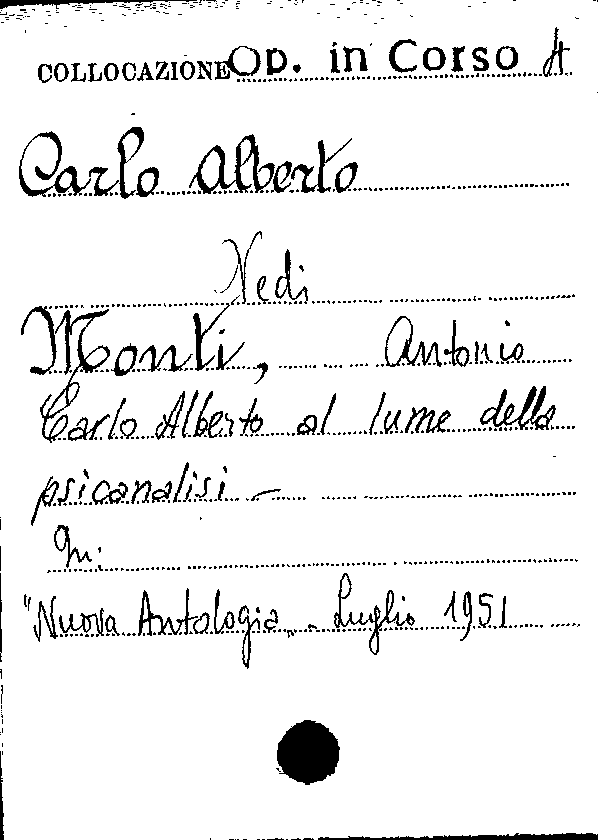 COLLOCAZIONE Op. in Corso A
Carlo Alberto
Vedi
Monti, Antonio
Carlo Alberto al lume della
psicanalisi -
In:
"Nuova Antologia„ - Luglio 1951